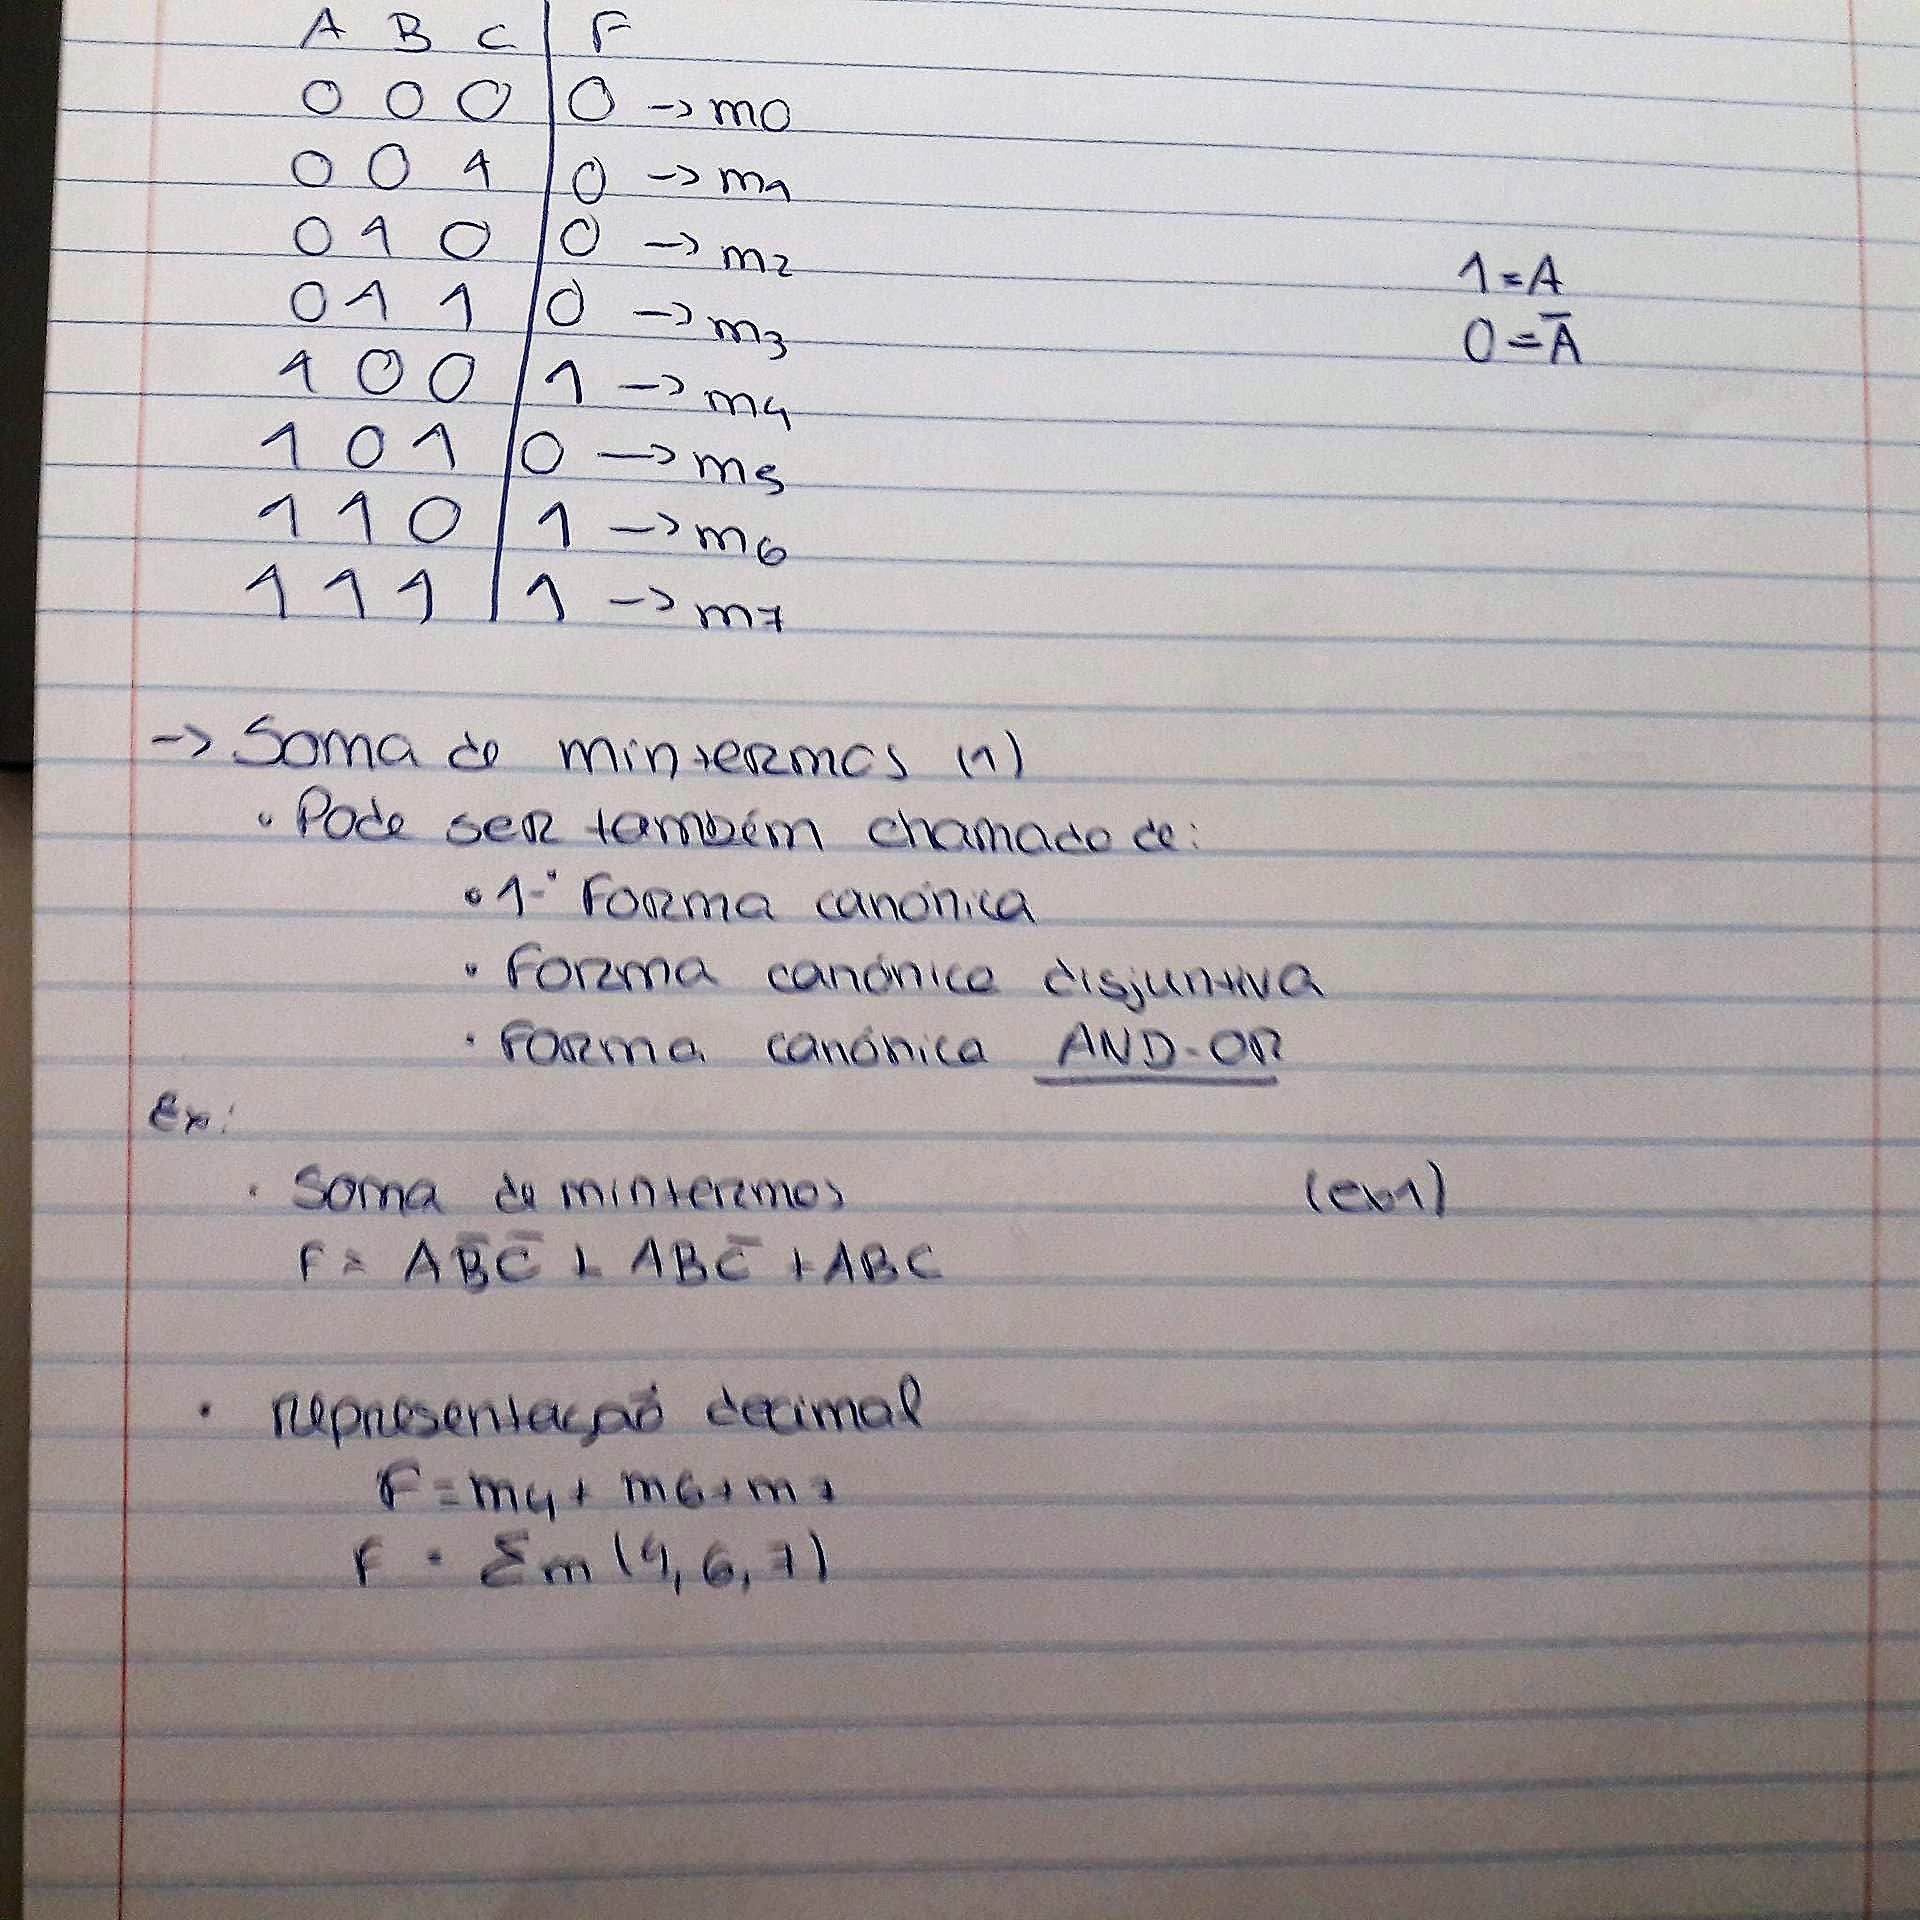 A B C | F
0 0 0 | 0 -> m0
0 0 1 | 0 -> m1
0 1 0 | 0 -> m2
0 1 1 | 0 -> m3
1 0 0 | 1 -> m4
1 0 1 | 0 -> m5
1 1 0 | 1 -> m6
1 1 1 | 1 -> m7
1 = A
0 = A̅
-> Soma de mintermos (1)
• Pode ser também chamado de:
• 1ª Forma canónica
• Forma canónica disjuntiva
• Forma canónica AND-OR
Ex:
• Soma de mintermos
F = A B̅ C̅ + A B C̅ + A B C
• representação decimal
F = m4 + m6 + m7
F = Σm (4, 6, 7)